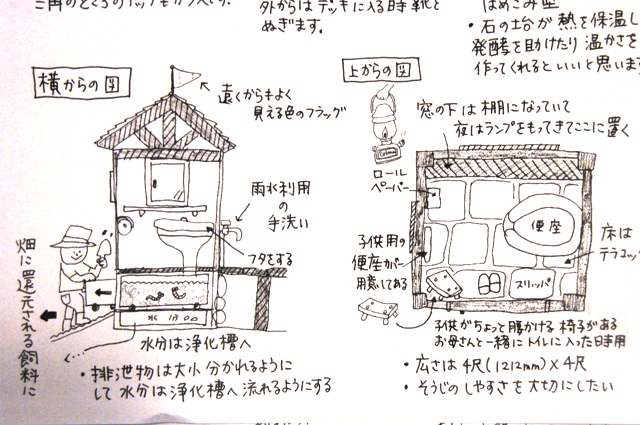 外からはデッキに入る時靴を
ぬぎます。
はめこみ型
・石の台が熱を保温し
発酵を助けたり温かさを
作ってくれるといいと思います
横からの図
遠くからもよく
見える色のフラッグ
雨水利用
の手洗い
フタをする
畑に還元される飼料に
水分
水分は浄化槽へ
・排泄物は大小分かれるように
して水分は浄化槽へ流れるようにする
上からの図
窓の下は棚になっていて
夜はランプをもってきてここに置く
ロール
ペーパー
便座
子供用の
便座カバー
用意してある
スリッパ
床は
テラコッ
子供がちょっと腰かける椅子がある
お母さんと一緒にトイレに入った時用
・広さは4尺(1212mm)×4尺
・そうじのしやすさを大切にしたい